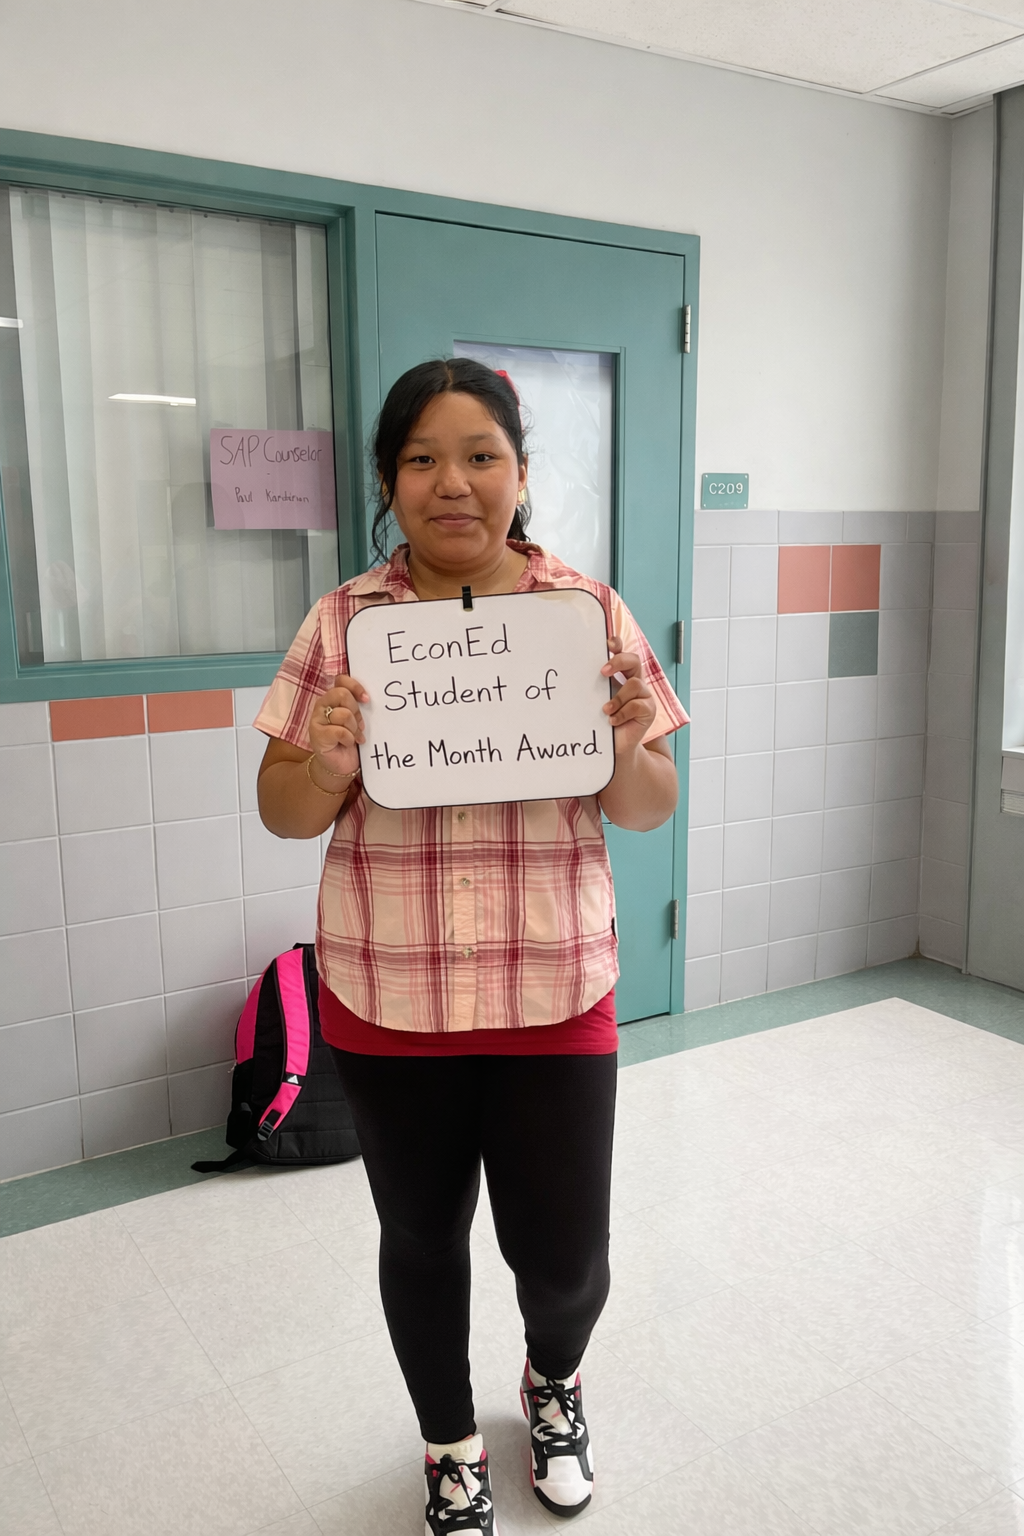 SAP Counselor
Paul
C209
EconEd
Student of
the Month Award